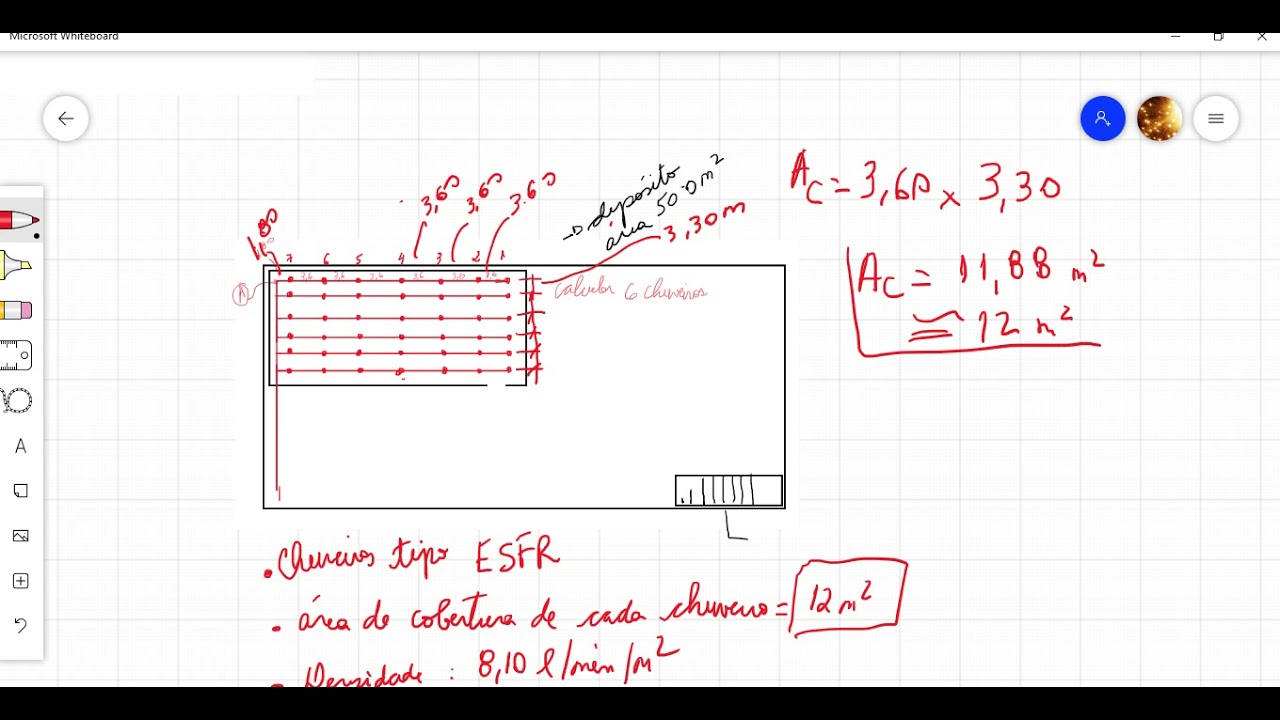 Microsoft Whiteboard
3,60 3,60 3.60
→ depósito
área 50.0 m²
3,30 m
1,80
7 6 5 4 3 2 1
A
3,6 3,6 3,6 3,6
Calcular 6 chuveiros
Ac = 3,60 x 3,30
Ac = 11,88 m²
≅ 12 m²
• Chuveiros tipo ESFR
• área de cobertura de cada chuveiro = 12 m²
• Densidade : 8,10 l/min/m²
A